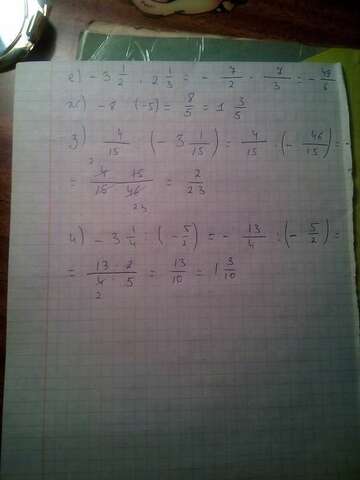 е) - 3 1/2 · 2 1/3 = - 7/2 · 7/3 = - 49/6
ж) - 8 (-5) = 8/5 = 1 3/5
з) 4/15 : (- 3 1/15) = 4/15 : (- 46/15) = -
= 4 · 15 / 15 · 46 = 2/23
2
23
4) - 3 1/4 : (- 5/2) = - 13/4 : (- 5/2) =
= 13 · 2 / 4 · 5 = 13/10 = 1 3/10
2